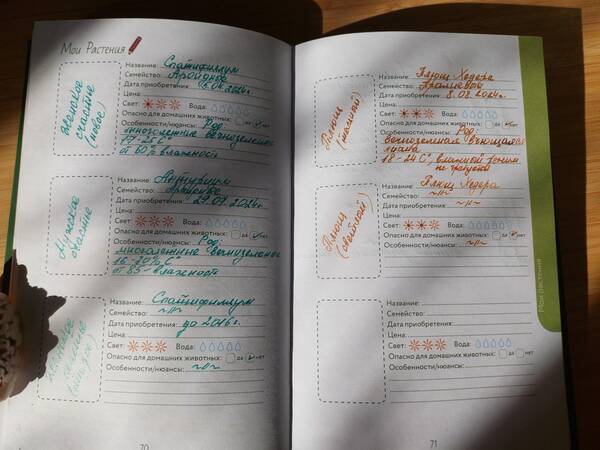 Мои Растения
Женское
счастье
(новое)
Название: Спатифиллум
Семейство: Аройдное
Дата приобретения: .04.2024г.
Цена:
Свет: Вода:
Опасно для домашних животных: да нет
Особенности/нюансы: Род
многолетние вечнозеленые
от 60% влажность
Мужское
счастье
Название: Антуриум
Семейство: Ароидные
Дата приобретения: 29.07.2024г.
Цена:
Свет: Вода:
Опасно для домашних животных: да нет
Особенности/нюансы: Род
многолетние вечнозеленые
от 85- влажность
Женское
Название: Спатифиллум
Семейство: ~//~
Дата приобретения: до 2016г.
Цена:
Свет: Вода:
Опасно для домашних животных: да нет
Особенности/нюансы: ~//~
70
Плющ
Название: Плющ Хедера
Семейство: Аралиевые
Дата приобретения: 8.08.2024г.
Цена:
Свет: Вода:
Опасно для домашних животных: да нет
Особенности/нюансы: Род
вечнозеленая вьющаяся
лиана
18-24С°, влажной
не требует
Плющ
(светлый)
Название: Плющ Хедера
Семейство: ~//~
Дата приобретения: ~//~
Цена:
Свет: Вода:
Опасно для домашних животных: да нет
Особенности/нюансы: ~//~
Название:
Семейство:
Дата приобретения:
Цена:
Свет: Вода:
Опасно для домашних животных: да нет
Особенности/нюансы:
71
Мои растения